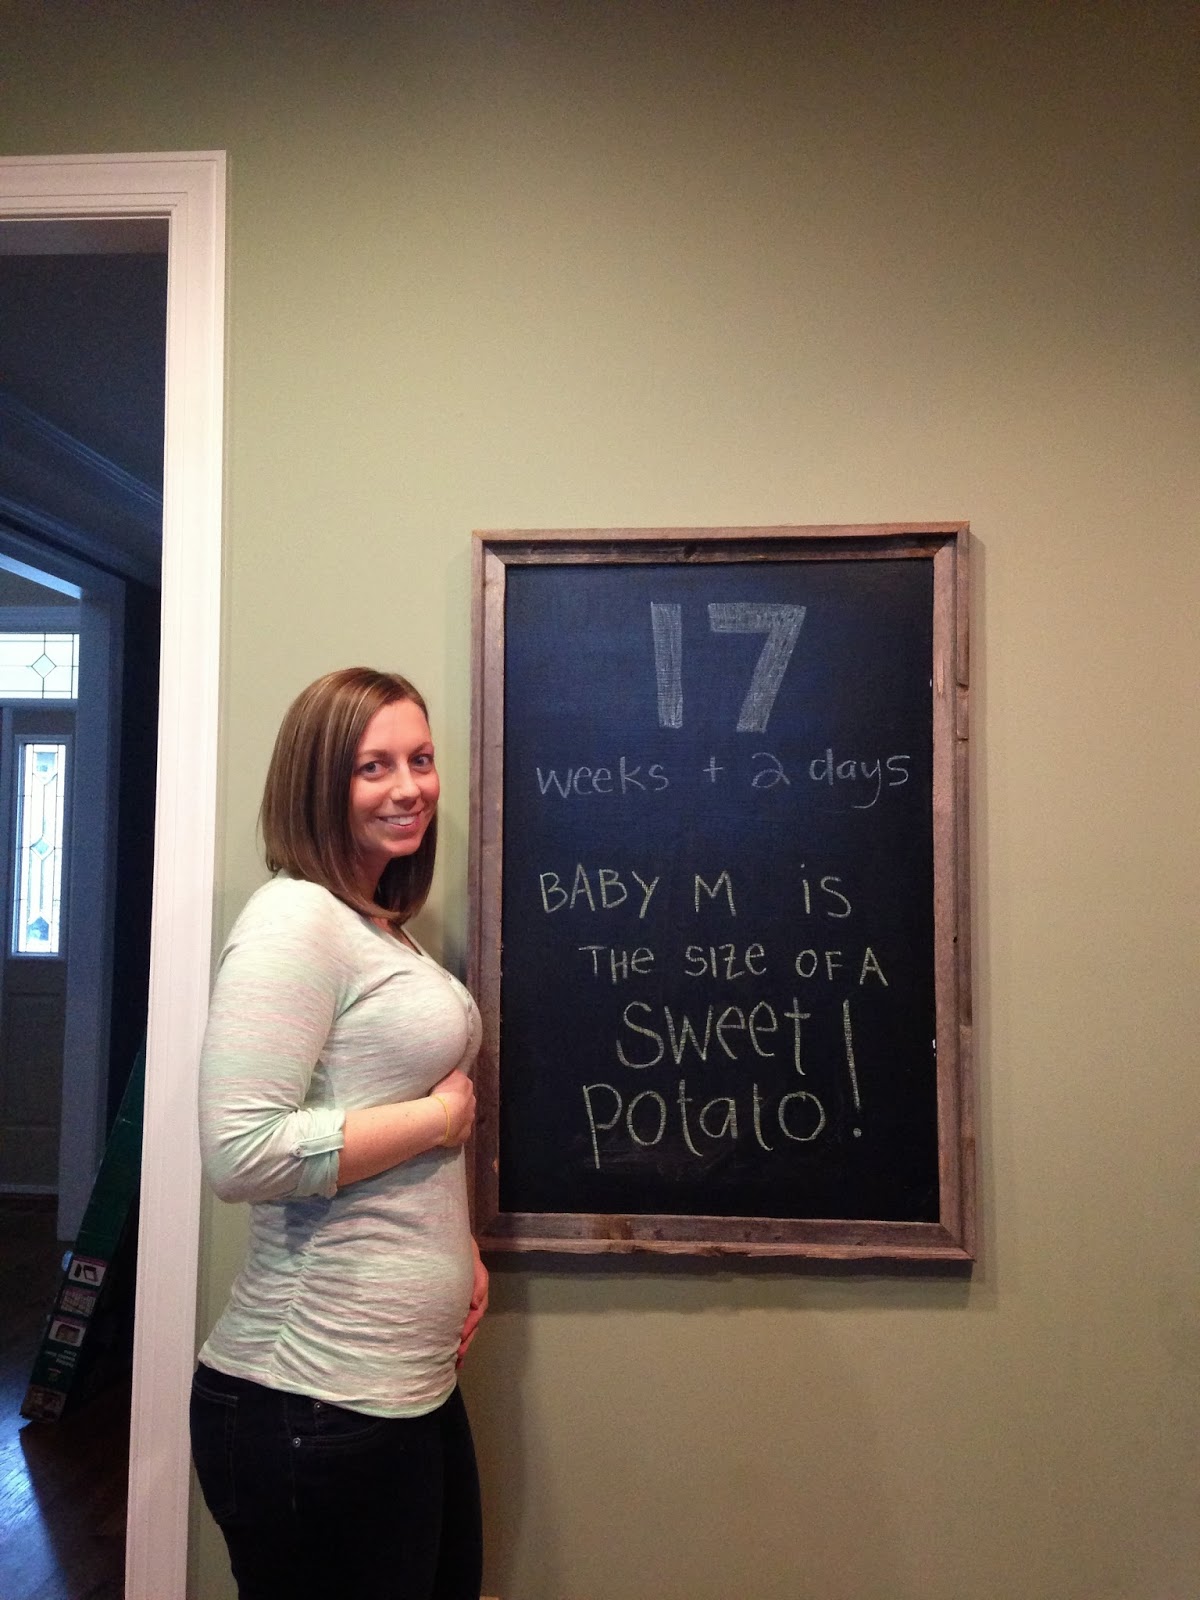 17
weeks + 2 days
BABY M iS
THe SIZE OF A
Sweet
potato!